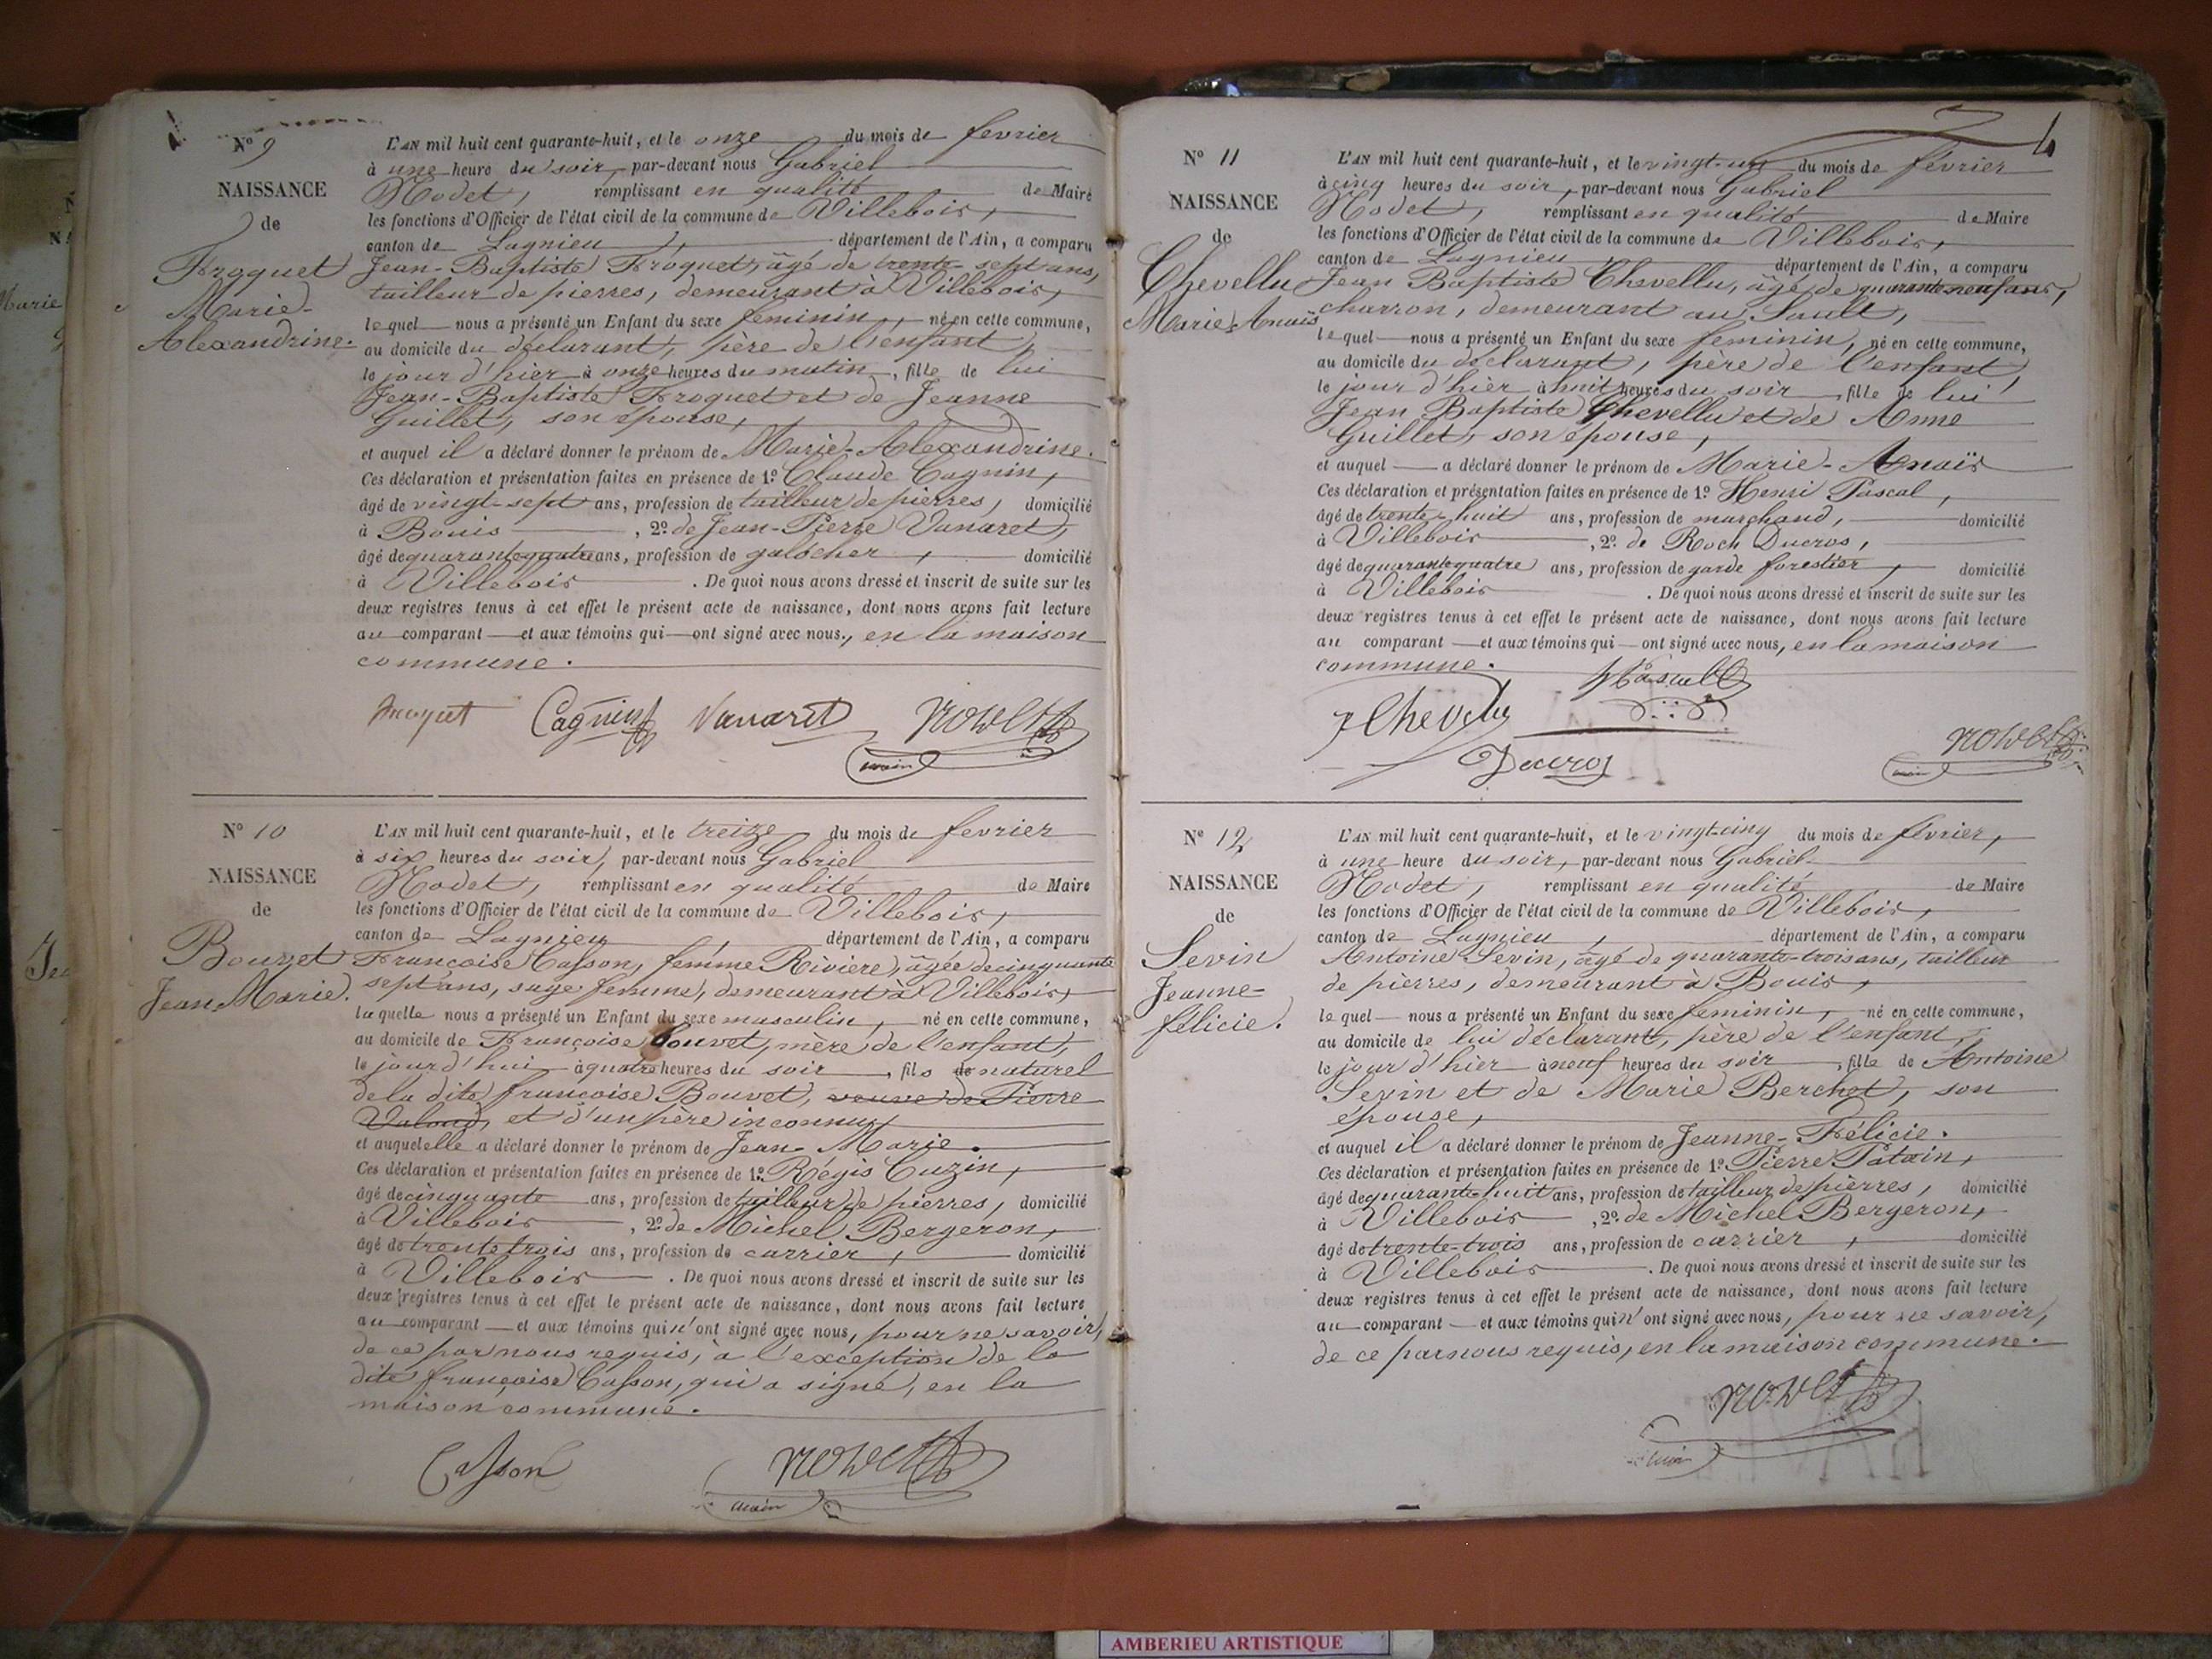 Nº 9
NAISSANCE
de
Froquet
Marie-
Alexandrine.
L'AN mil huit cent quarante-huit, et le onze du mois de fevrier
à une heure du soir, par-devant nous Gabriel
Nodet, remplissant en qualité de Maire
les fonctions d'Officier de l'état civil de la commune de Villebois,
canton de Lagnieu, département de l'Ain, a comparu
Jean-Baptiste Froquet, âgé de trente-sept ans,
tailleur de pierres, demeurant à Villebois,
lequel nous a présenté un Enfant du sexe feminin, né en cette commune,
au domicile du déclarant, père de l'enfant,
le jour d'hier à onze heures du matin, fille de lui
Jean-Baptiste Froquet et de Jeanne
Guillet, son épouse,
et auquel il a déclaré donner le prénom de Marie-Alexandrine.
Ces déclaration et présentation faites en présence de 1º Claude Cagnin,
âgé de vingt-sept ans, profession de tailleur de pierres, domicilié
à Bouis, 2º de Jean-Pierre Vanaret,
âgé de quarante-quatre ans, profession de galocher, domicilié
à Villebois. De quoi nous avons dressé et inscrit de suite sur les
deux registres tenus à cet effet le présent acte de naissance, dont nous avons fait lecture
au comparant et aux témoins qui ont signé avec nous, en la maison
commune.
froquet Cagnin Vanaret Nodet
maire
Nº 10
NAISSANCE
de
Bouvet
Jean Marie.
L'AN mil huit cent quarante-huit, et le treize du mois de fevrier
à six heures du soir, par-devant nous Gabriel
Nodet, remplissant en qualité de Maire
les fonctions d'Officier de l'état civil de la commune de Villebois,
canton de Lagnieu département de l'Ain, a comparu
Françoise Casson, femme Rivière, âgée de cinquante
sept ans, sage femme, demeurant à Villebois,
laquelle nous a présenté un Enfant du sexe masculin, né en cette commune,
au domicile de Françoise Bouvet, mère de l'enfant,
le jourd'hui à quatre heures du soir, fils de naturel
de la dite françoise Bouvet, veuve de Pierre
et d'un père inconnu,
et auquel elle a déclaré donner le prénom de Jean-Marie.
Ces déclaration et présentation faites en présence de 1º Régis Cuzin,
âgé de cinquante ans, profession de tailleur de pierres, domicilié
à Villebois, 2º de Michel Bergeron,
âgé de trente trois ans, profession de carrier, domicilié
à Villebois. De quoi nous avons dressé et inscrit de suite sur les
deux registres tenus à cet effet le présent acte de naissance, dont nous avons fait lecture
au comparant et aux témoins qui n'ont signé avec nous, pour ne savoir,
de ce par nous requis, à l'exception de la
dite françoise Casson, qui a signé, en la
maison commune.
Casson Nodet
maire
4
Nº 11
NAISSANCE
de
Chevellu
Marie-Anaïs
L'AN mil huit cent quarante-huit, et le vingt-un du mois de février
à cinq heures du soir, par-devant nous Gabriel
Nodet, remplissant en qualité de Maire
les fonctions d'Officier de l'état civil de la commune de Villebois,
canton de Lagnieu, département de l'Ain, a comparu
Jean Baptiste Chevellu, âgé de quarante neuf ans,
charron, demeurant au Sault,
lequel nous a présenté un Enfant du sexe feminin, né en cette commune,
au domicile du déclarant, père de l'enfant,
le jour d'hier à huit heures du soir, fille de lui
Jean Baptiste Chevellu et de Anne
Guillet, son épouse,
et auquel a déclaré donner le prénom de Marie-Anaïs
Ces déclaration et présentation faites en présence de 1º Henri Pascal,
âgé de trente-huit ans, profession de marchand, domicilié
à Villebois, 2º de Roch Ducros,
âgé de quarante quatre ans, profession de garde forestier, domicilié
à Villebois. De quoi nous avons dressé et inscrit de suite sur les
deux registres tenus à cet effet le présent acte de naissance, dont nous avons fait lecture
au comparant et aux témoins qui ont signé avec nous, en la maison
commune.
Pascal
Chevellu
Ducros
Nodet
maire
Nº 12
NAISSANCE
de
Sevin
Jeanne-
félicie.
L'AN mil huit cent quarante-huit, et le vingt-cinq du mois de février,
à une heure du soir, par-devant nous Gabriel
Nodet, remplissant en qualité de Maire
les fonctions d'Officier de l'état civil de la commune de Villebois,
canton de Lagnieu, département de l'Ain, a comparu
Antoine Sevin, âgé de quarante-trois ans, tailleur
de pierres, demeurant à Bouis,
lequel nous a présenté un Enfant du sexe feminin, né en cette commune,
au domicile de lui déclarant, père de l'enfant,
le jour d'hier à neuf heures du soir, fille de Antoine
Sevin et de Marie Berchet, son
épouse,
et auquel il a déclaré donner le prénom de Jeanne-Félicie.
Ces déclaration et présentation faites en présence de 1º Pierre Patain,
âgé de quarante-huit ans, profession de tailleur de pierres, domicilié
à Villebois, 2º de Michel Bergeron,
âgé de trente-trois ans, profession de carrier, domicilié
à Villebois. De quoi nous avons dressé et inscrit de suite sur les
deux registres tenus à cet effet le présent acte de naissance, dont nous avons fait lecture
au comparant et aux témoins qui n'ont signé avec nous, pour ne savoir,
de ce par nous requis, en la maison commune.
Nodet
maire
AMBERIEU ARTISTIQUE